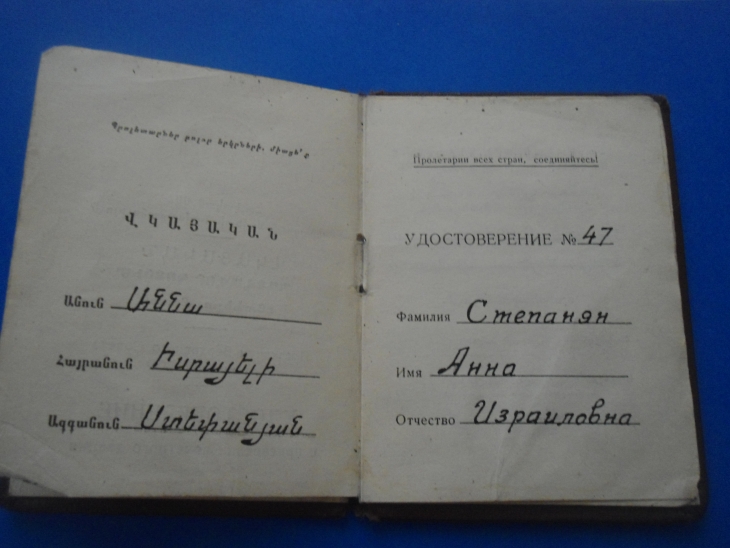 Պրոլետարներ բոլոր երկրների, միացե՛ք
ՎԿԱՅԱԿԱՆ
Անուն Աննա
Հայրանուն Իսրայելի
Ազգանուն Ստեփանյան
Пролетарии всех стран, соединяйтесь!
УДОСТОВЕРЕНИЕ № 47
Фамилия Степанян
Имя Анна
Отчество Израиловна